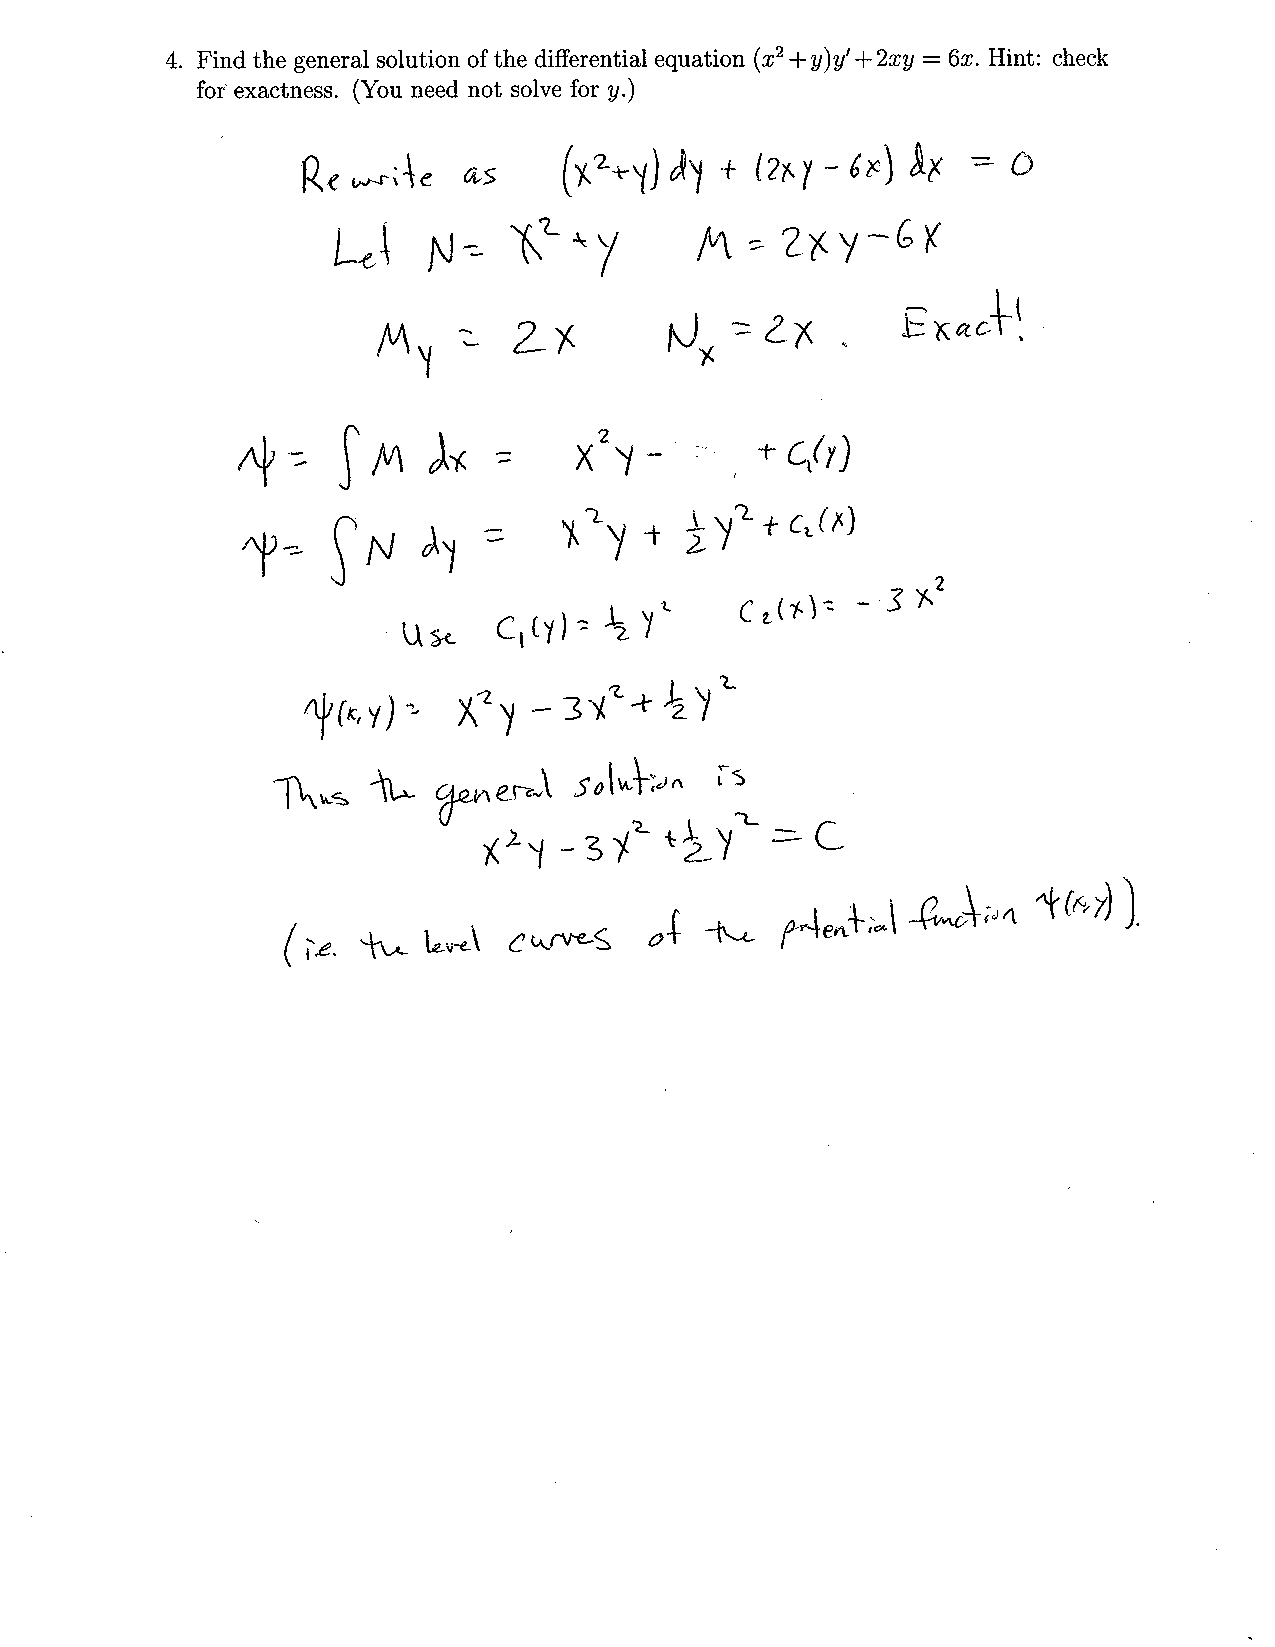 4. Find the general solution of the differential equation (x² + y)y′ + 2xy = 6x. Hint: check
for exactness. (You need not solve for y.)
Rewrite as (x²+y) dy + (2xy - 6x) dx = 0
Let N = x² + y M = 2xy - 6x
My = 2x Nx = 2x. Exact!
ψ = ∫ M dx = x²y - + C₁(y)
ψ = ∫ N dy = x²y + ½y² + C₂(x)
Use C₁(y) = ½y² C₂(x) = -3x²
ψ(x,y) = x²y - 3x² + ½y²
Thus the general solution is
x²y - 3x² + ½y² = C
(i.e. the level curves of the potential function ψ(x,y)).